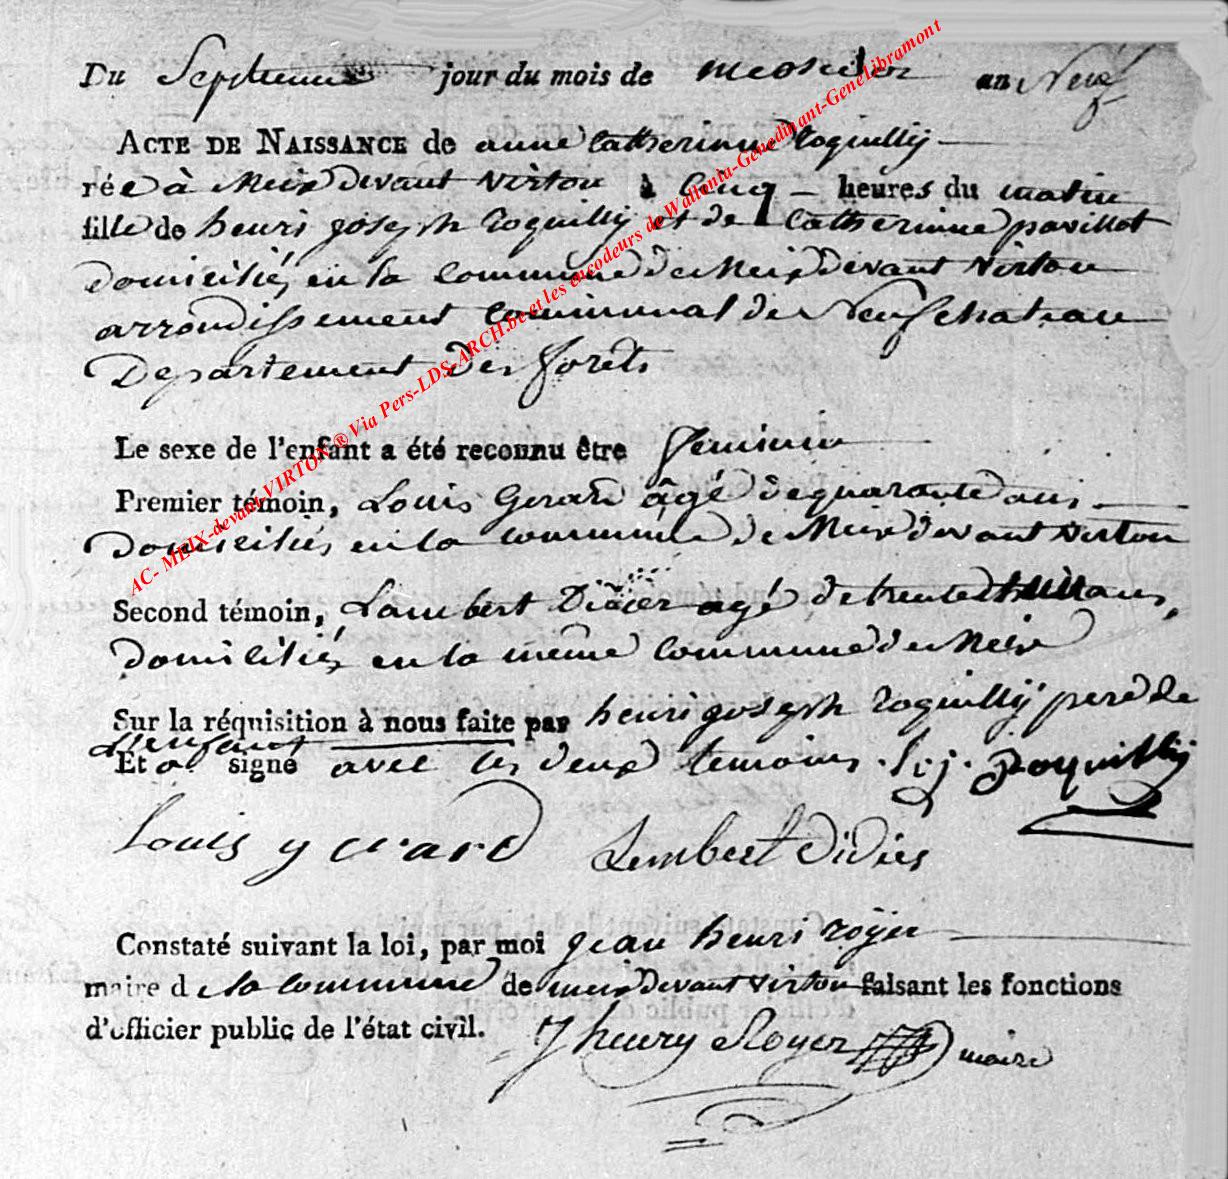 Du Septieme jour du mois de messidor an Neuf
ACTE DE NAISSANCE de anne Catherinne roquilly
née à Meix devant Virton à Cinq heures du matin
fille de henri joseph roquilly et de Catherinne pavillot
domiciliés en la commune de Meix devant Virton
arrondissement communal de Neufchateau
Departement Des forets
Le sexe de l'enfant a été reconnu être feminin
Premier témoin, Louis Gerard âgé de quarante ans
domiciliés en la commune de Meix devant virton
Second témoin, Lambert Didier agé de trente huit ans,
domiciliés en la meme commune de Meix
Sur la réquisition à nous faite par henri joseph roquilly pere de
L'enfant
Et a signé avec les deux temoins. h. j. Roquilly
Louis gerard Lembert Didier
Constaté suivant la loi, par moi jean henri royer
maire de la commune de meix devant virton faisant les fonctions
d'officier public de l'état civil. J henry Royer maire
AC- MEIX-devant-VIRTON ® Via Pers-LDS-ARCH.be et les encodeurs de Wallonia-Genedinant-GeneLibramont